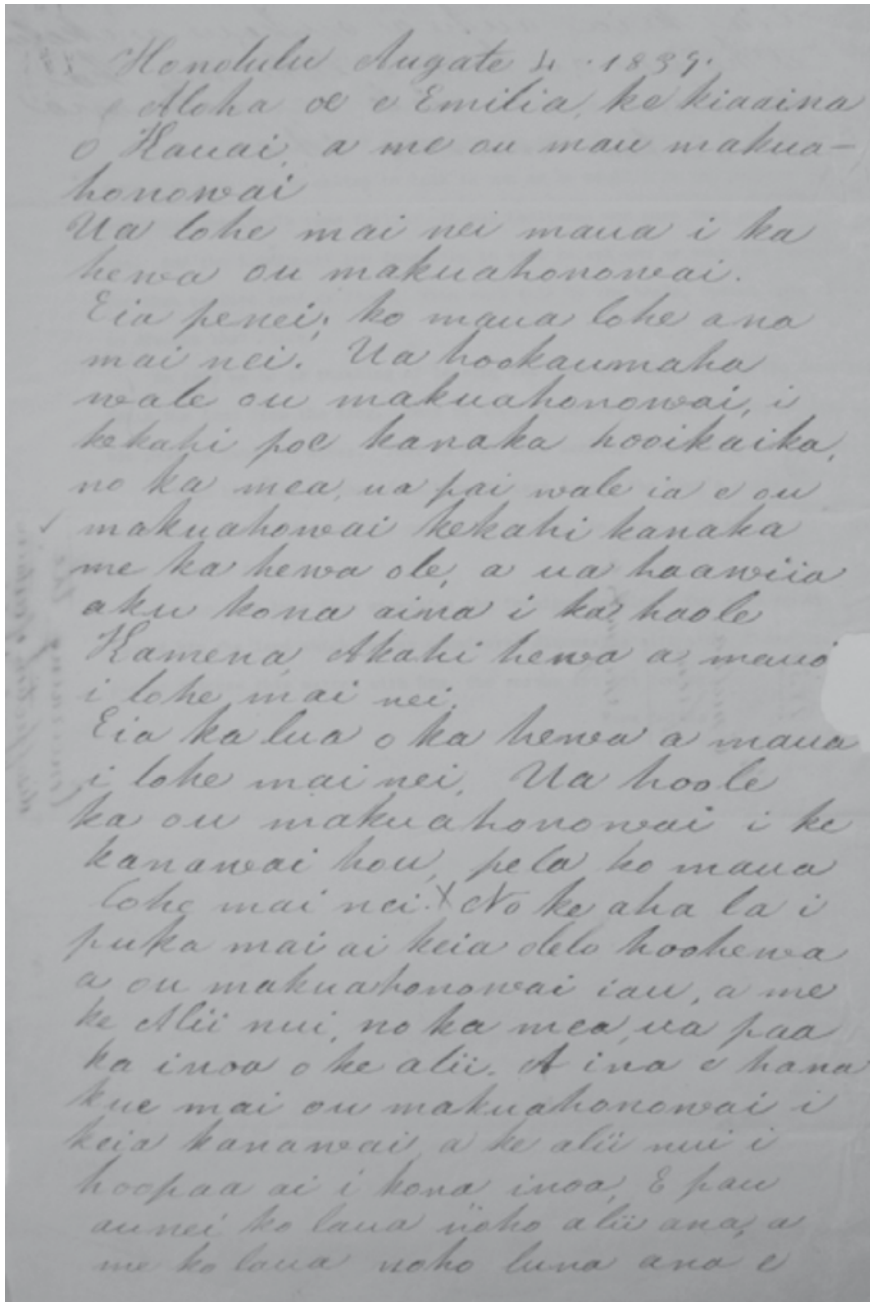 Honolulu Augate 4. 1839.
Aloha oe e Emilia, ke kiaaina
o Kauai, a me ou mau makua-
honowai
Ua lohe mai nei maua i ka
hewa ou makuahonowai.
Eia penei; ko maua lohe ana
mai nei. Ua hookaumaha
wale ou makuahonowai, i
kekahi poe kanaka hooikaika,
no ka mea, ua pai wale ia e ou
makuahowai kekahi kanaka
me ka hewa ole, a ua haawiia
aku kona aina i ka haole
Kamena, Akahi hewa a maua
i lohe mai nei.
Eia ka lua o ka hewa a maua
i lohe mai nei, Ua hoole
ka ou makuahonowai i ke
kanawai hou, pela ko maua
lohe mai nei. X No ke aha la i
puka mai ai keia olelo hoohewa
a ou makuahonowai iau, a me
ke Alii nui, no ka mea, ua paa
ka inoa o ke alii. A ina e hana
kue mai ou makuahonowai i
keia kanawai a ke alii nui i
hoopaa ai i kona inoa, E pau
aunei ko laua noho alii ana, a
me ko laua noho luna ana e